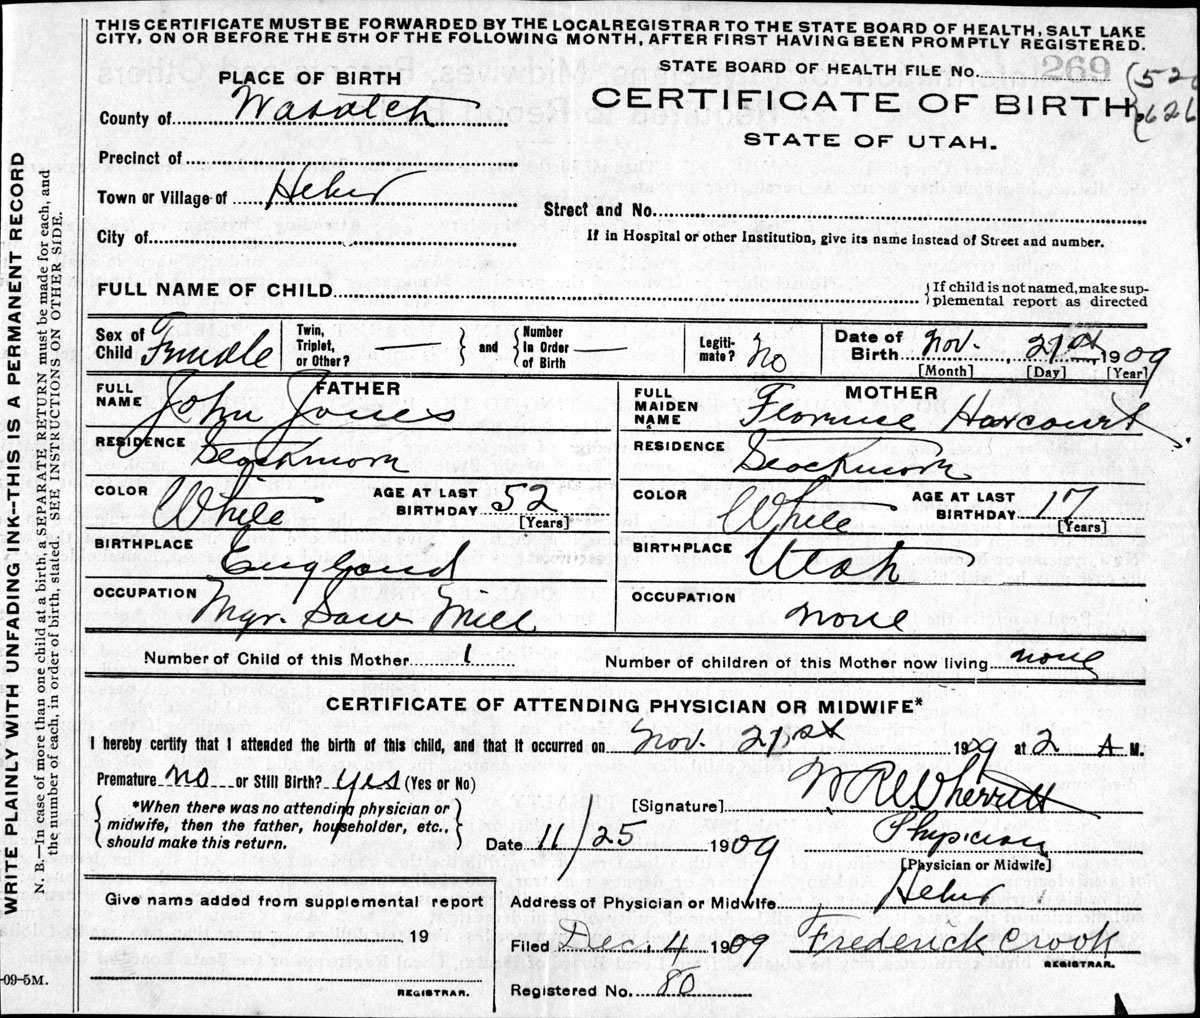 THIS CERTIFICATE MUST BE FORWARDED BY THE LOCAL REGISTRAR TO THE STATE BOARD OF HEALTH, SALT LAKE
CITY, ON OR BEFORE THE 5TH OF THE FOLLOWING MONTH, AFTER FIRST HAVING BEEN PROMPTLY REGISTERED.
PLACE OF BIRTH
STATE BOARD OF HEALTH FILE No. 269
County of Wasatch
CERTIFICATE OF BIRTH.
626
Precinct of
STATE OF UTAH.
Town or Village of Heber
Street and No.
City of
If in Hospital or other Institution, give its name instead of Street and number.
FULL NAME OF CHILD
If child is not named, make sup-
plemental report as directed
Sex of Child Female
Twin, Triplet, or Other? —
and
Number In Order of Birth —
Legiti-mate? no
Date of Birth Nov. 21st 1909
[Month] [Day] [Year]
FATHER
FULL NAME John Jones
RESIDENCE
COLOR White
AGE AT LAST BIRTHDAY 52
[Years]
BIRTHPLACE England
OCCUPATION Mgr. Saw Mill
MOTHER
FULL MAIDEN NAME Florence Harcourt
RESIDENCE
COLOR White
AGE AT LAST BIRTHDAY 17
[Years]
BIRTHPLACE Utah
OCCUPATION none
Number of Child of this Mother 1
Number of children of this Mother now living none
CERTIFICATE OF ATTENDING PHYSICIAN OR MIDWIFE*
I hereby certify that I attended the birth of this child, and that it occurred on Nov. 21st 1909 at 2 A M.
Premature no or Still Birth? yes (Yes or No)
*When there was no attending physician or
midwife, then the father, householder, etc.,
should make this return.
[Signature] W R Wherritt
Date 11/25 1909
Physician
[Physician or Midwife]
Give name added from supplemental report
Address of Physician or Midwife Heber
, 19
Filed Dec. 4 1909 Frederick Crook
REGISTRAR.
REGISTRAR.
Registered No. 80
-09-5M.
WRITE PLAINLY WITH UNFADING INK--THIS IS A PERMANENT RECORD
N. B.—In case of more than one child at a birth, a SEPARATE RETURN must be made for each, and
the number of each, in order of birth, stated. SEE INSTRUCTIONS ON OTHER SIDE.